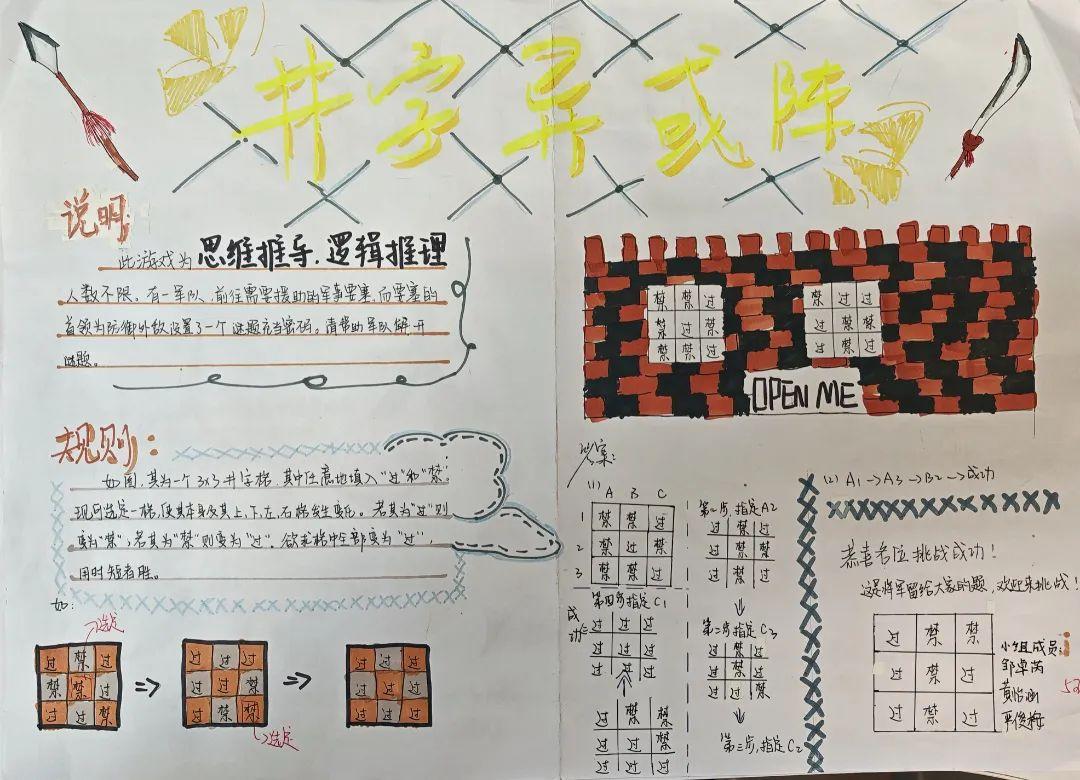 井字异或阵
说明:
此游戏为思维推导.逻辑推理
人数不限。有一军队,前往需要援助的军事要塞,而要塞的
首领为防御外敌设置了一个谜题充当密码。请帮助军队解开
谜题。
规则:
如图,其为一个3x3井字格,其中任意地填入“过”和“禁”
现可选定一格,使其本身及其上、下、左、右格发生变化。若其为“过”则
变为“禁”;若其为“禁”则变为“过”。欲求格中全部变为“过”,
用时短者胜。
如:
选定
过 禁 过
禁 禁 过
过 过 禁
⇒
过 过 过
过 过 禁
过 禁 禁
选定
⇒
过 过 过
过 过 过
过 过 过
禁 禁 过
禁 过 禁
禁 禁 过
禁 过 过
过 禁 禁
过 禁 过
OPEN ME
答案:
(1) A B C
1 禁 禁 过
2 禁 过 禁
3 禁 禁 过
第一步,指定A2
过 禁 过
过 禁 禁
过 禁 过
第二步指定C3
过 禁 过
过 禁 过
过 过 禁
第三步,指定C2
过 禁 禁
过 过 过
过 过 过
第四步指定C1
成功=
过 过 过
过 过 过
过 过 过
(2) A1→A3→B2→成功
恭喜各位挑战成功!
这是将军留给大家的题,欢迎来挑战!
过 禁 禁
过 禁 过
过 禁 过
小组成员: